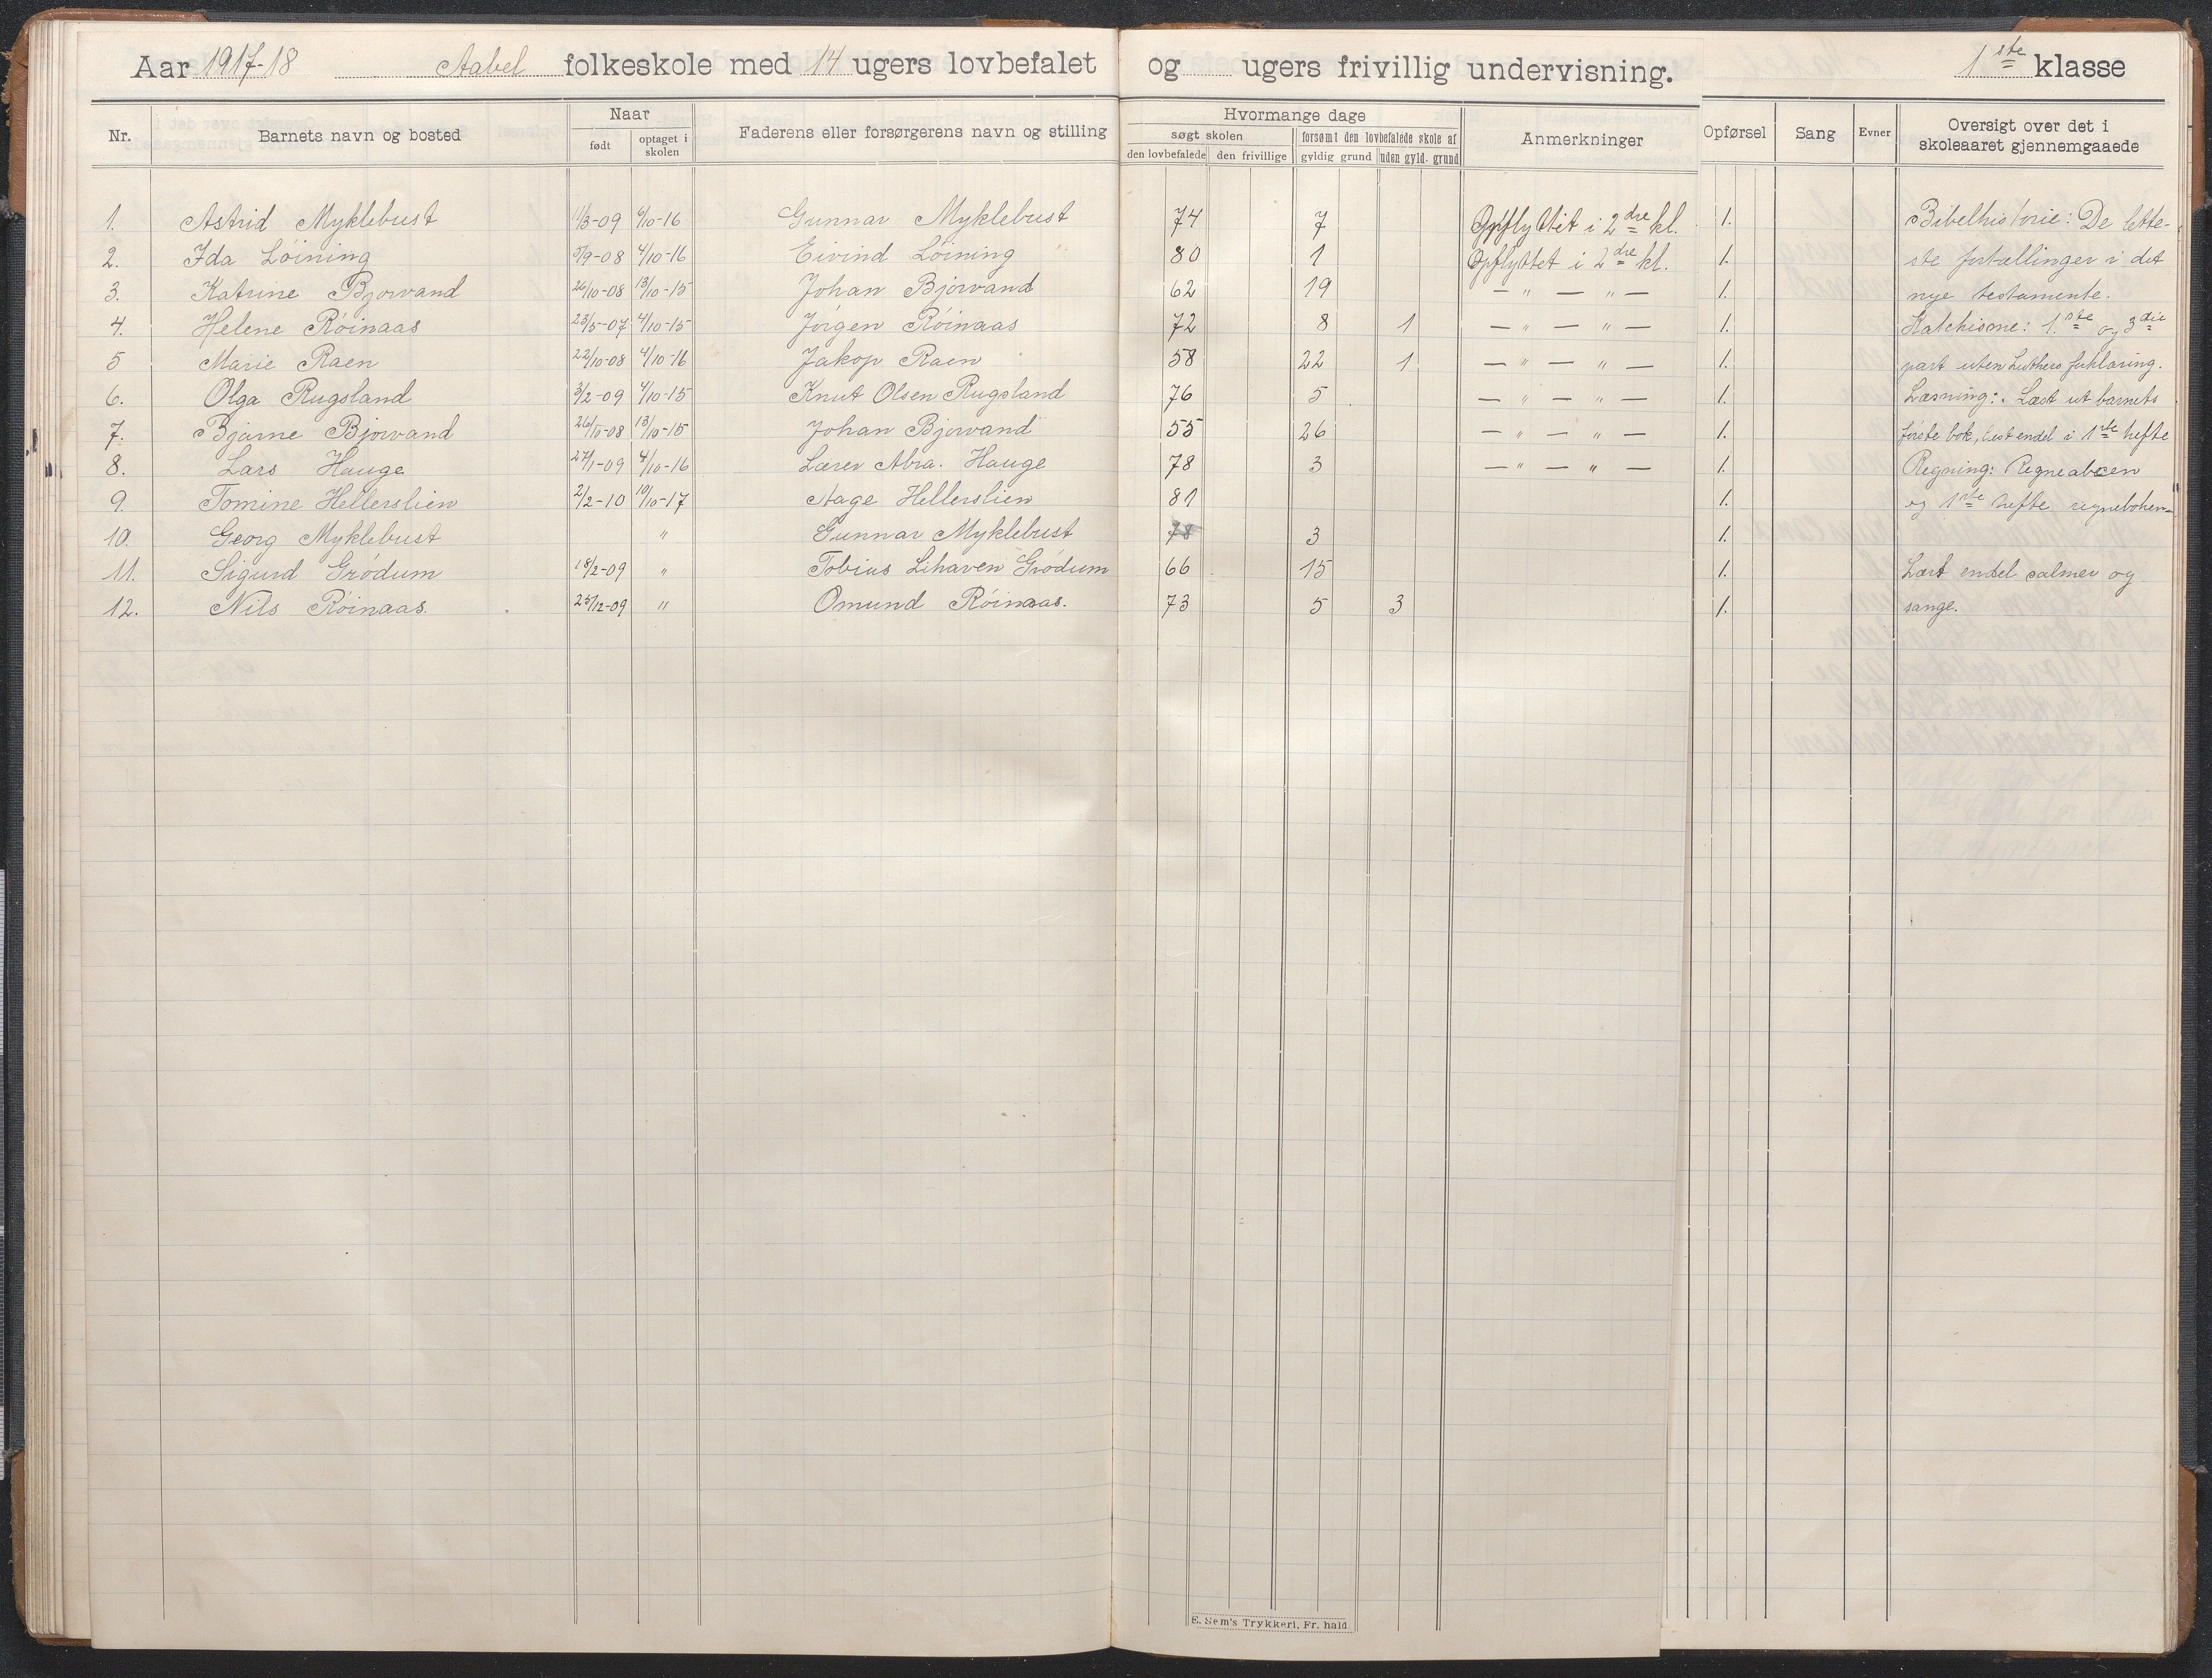 Aar 1917-18 Aabel folkeskole med 14 ugers lovbefalet og ugers frivillig undervisning. 1ste klasse
Nr. Barnets navn og bosted Naar født optaget i skolen Faderens eller forsørgerens navn og stilling Hvormange dage søgt skolen den lovbefalede den frivillige forsømt den lovbefalede skole af gyldig grund uden gyld. grund Anmerkninger Opførsel Sang Evner Oversigt over det i skoleaaret gjennemgaaede
1. Astrid Myklebust 11/3-09 4/10-16 Gunnar Myklebust 74 7 Opflyttet i 2dre kl. 1. Bibelhistorie: De lette-
2. Ida Löining 5/9-08 4/10-16 Eivind Löining 80 1 Opflyttet i 2dre kl. 1. ste fortællinger i det
3. Katrine Bjorvand 26/10-08 13/10-15 Johan Bjorvand 62 19 — " — " — 1. nye testamente.
4. Helene Röinaas 23/5-07 4/10-15 Jörgen Röinaas 72 8 1 — " — " — 1. Katekisme: 1.ste og 3die
5 Marie Raen 22/10-08 4/10-16 Jakop Raen 58 22 1 — " — " — 1. part uten Luthers forklaring.
6. Olga Rugsland 3/2-09 4/10-15 Knut Olsen Rugsland 76 5 — " — " — 1. Læsning: Læst ut barnets
7. Bjarne Bjorvand 26/10-08 13/10-15 Johan Bjorvand 55 26 — " — " — 1. förste bok, læst endel i 1ste hefte
8. Lars Hauge 27/1-09 4/10-16 Lærer Abra. Hauge 78 3 — " — " — 1. Regning: Regneabcen
9. Tomine Hellerslien 2/2-10 10/10-17 Aage Hellerslien 81 1. og 1ste hefte regneboken
10. Georg Myklebust " Gunnar Myklebust 78 3 1.
11. Sigurd Grödum 18/2-09 " Tobias Lihaven Grödum 66 15 1. Lært endel salmer og
12. Nils Röinaas. 25/12-09 " Omund Röinaas. 73 5 3 1. sange.
E. Sem's Trykkeri, Fr.hald